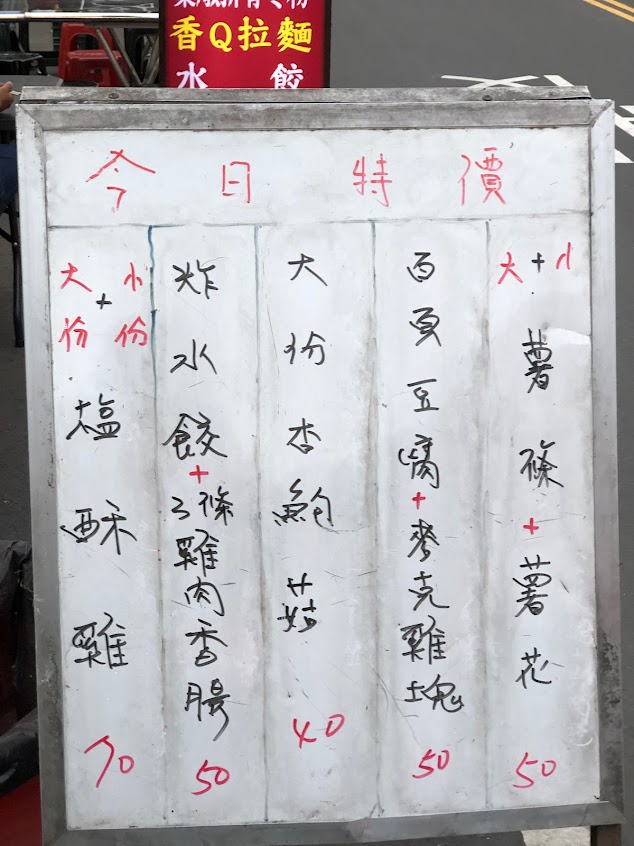 香Q拉麵
水餃
今日特價
大+小薯條+薯花50
百頁豆腐+麥克雞塊50
大份杏鮑菇40
炸水餃+3條雞肉香腸50
大份+小份塩酥雞70